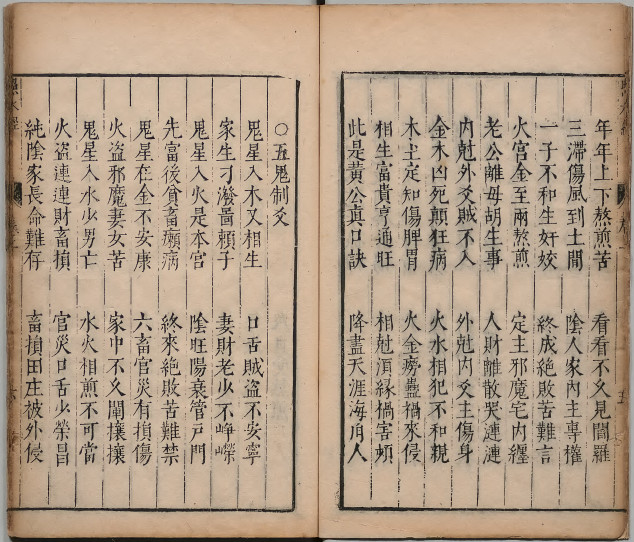 年年上下熬煎苦　看看不久見閻羅
三滯傷風到土間　陰人家內主專權
一子不和生奸姣　終成絶敗苦難言
火官金至兩熬煎　定主邪魔宅內纏
老公離母胡生事　人財離散哭漣漣
內尅外爻賊不入　外尅內爻主傷身
金木凶死顛狂病　火水相犯不和親
木土定知傷脾胃　火金癆蠱禍來侵
相生富貴亨通旺　相尅須縁禍害頻
此是黃公真口訣　降盡天涯海角人
○五鬼制爻
鬼星入木又相生　口舌賊盜不安寧
家生刁潑嚚頼子　妻財老少不崢嶸
鬼星入火是本宮　陰旺陽衰管戸門
先富後貧畜癩病　終來絶敗苦難禁
鬼星在金不安康　六畜官災有損傷
火盜邪魔妻女苦　家中不久閙攘攘
鬼星入水少男亡　水火相煎不可當
火盜連連財畜損　官災口舌少榮昌
純陰家長命難存　畜損田庄被外侵